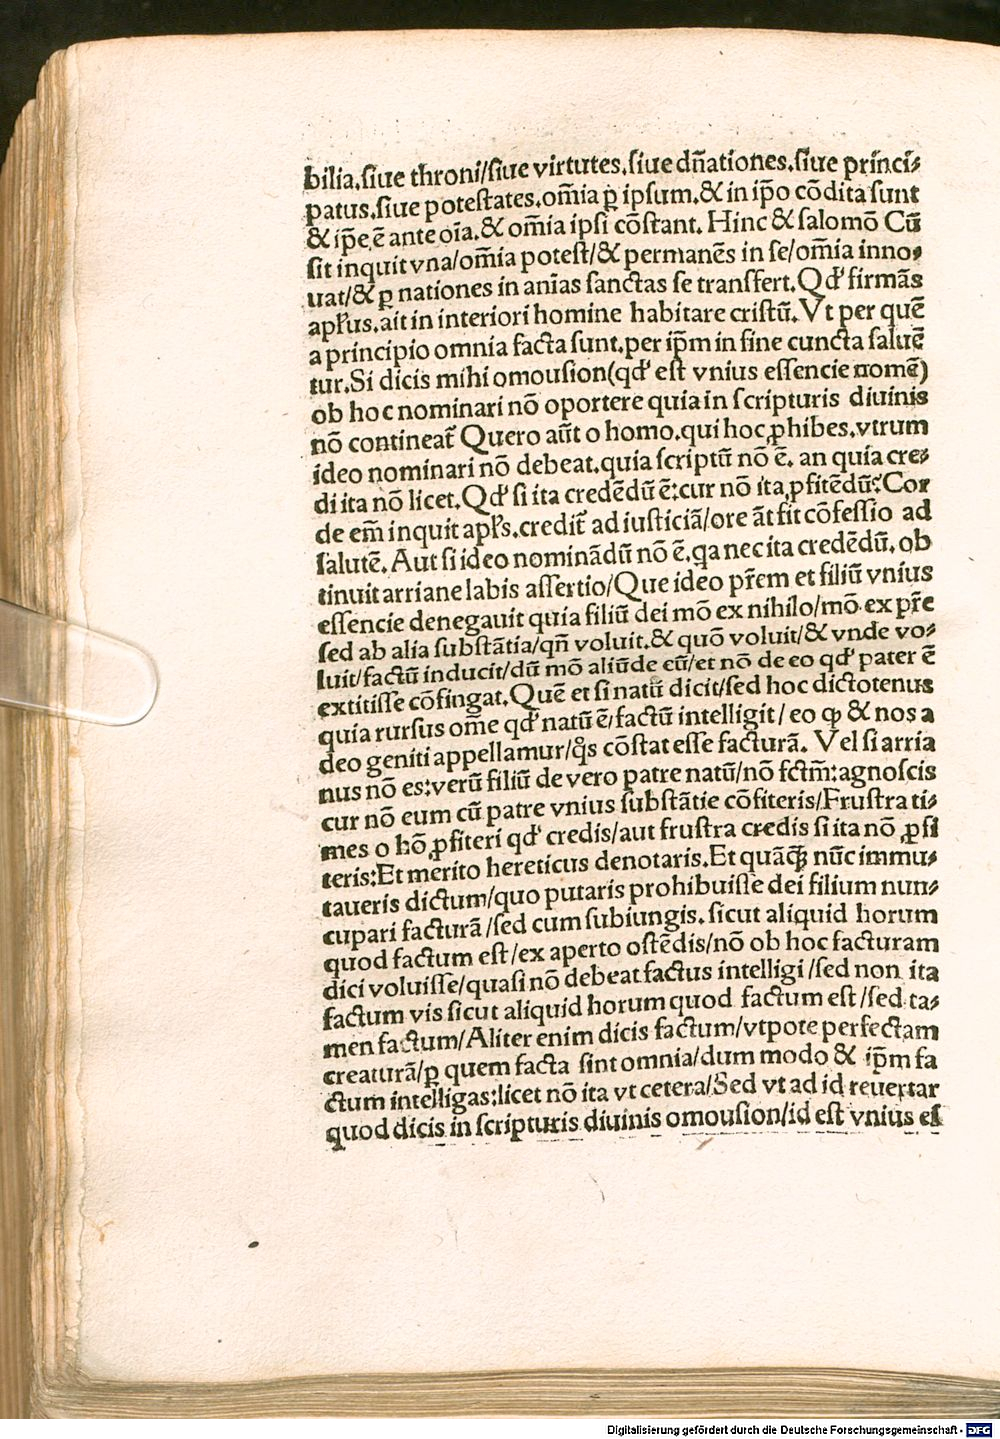 bilia.siue throni/siue virtutes.siue dn̄ationes.siue princi⸗
patus.siue potestates.om̄ia ꝑ ipsum.& in ip̄o cōdita sunt
& ip̄e ē ante oīa.& om̄ia ipsi cōstant. Hinc & salomō Cū
sit inquit vna/om̄ia potest/& permanēs in se/om̄ia inno⸗
uat/& ꝑ nationes in anīas sanctas se transfert.Qd' firmās
apl'us.ait in interiori homine habitare cristū.Vt per quē
a principio omnia facta sunt.per ip̄m in fine cuncta saluē
tur.Si dicis mihi omousion(qd' est vnius essencie nomē)
ob hoc nominari nō oportere quia in scripturis diuinis
nō contineat᷑ Quero aūt o homo.qui hoc ꝓhibes.vtrum
ideo nominari nō debeat.quia scriptū nō ē. an quia cre⸗
di ita nō licet.Qd' si ita credēdū ē:cur nō ita ꝓfitēdū?Cor
de em̄ inquit apl's.credit᷑ ad iusticiā/ore āt fit cōfessio ad
salutē. Aut si ideo nominādū nō ē.qa nec ita credēdū. ob
tinuit arriane labis assertio/Que ideo pr̄em et filiū vnius
essencie denegauit quia filiū dei mō ex nihilo/mō ex pr̄e
sed ab alia substātia/qn̄ voluit.& quō voluit/& vnde vo⸗
luit/factū inducit/dū mō aliūde eū/et nō de eo qd' pater ē
extitisse cōfingat.Quē et si natū dicit/sed hoc dictotenus
quia rursus om̄e qd' natū ē/factū intelligit/ eo ꝙ & nos a
deo geniti appellamur/q̊s cōstat esse facturā. Vel si arria
nus nō es:verū filiū de vero patre natū/nō fctm̄:agnoscis
cur nō eum cū patre vnius substātie cōfiteris/Frustra ti⸗
mes o hō ꝓfiteri qd' credis/aut frustra credis si ita nō ꝓfi
teris:Et merito hereticus denotaris.Et quāꝗ̄ nūc immu⸗
taueris dictum/quo putaris prohibuisse dei filium nun⸗
cupari facturā/sed cum subiungis. sicut aliquid horum
quod factum est/ex aperto ostēdis/nō ob hoc facturam
dici voluisse/quasi nō debeat factus intelligi/sed non ita
factum vis sicut aliquid horum quod factum est/sed ta⸗
men factum/Aliter enim dicis factum/vtpote perfectam
creaturā/ꝑ quem facta sint omnia/dum modo & ip̄m fa
ctum intelligas:licet nō ita vt cetera/Sed vt ad id reuertar
quod dicis in scripturis diuinis omousion/id est vnius es
Digitalisierung gefördert durch die Deutsche Forschungsgemeinschaft - DFG